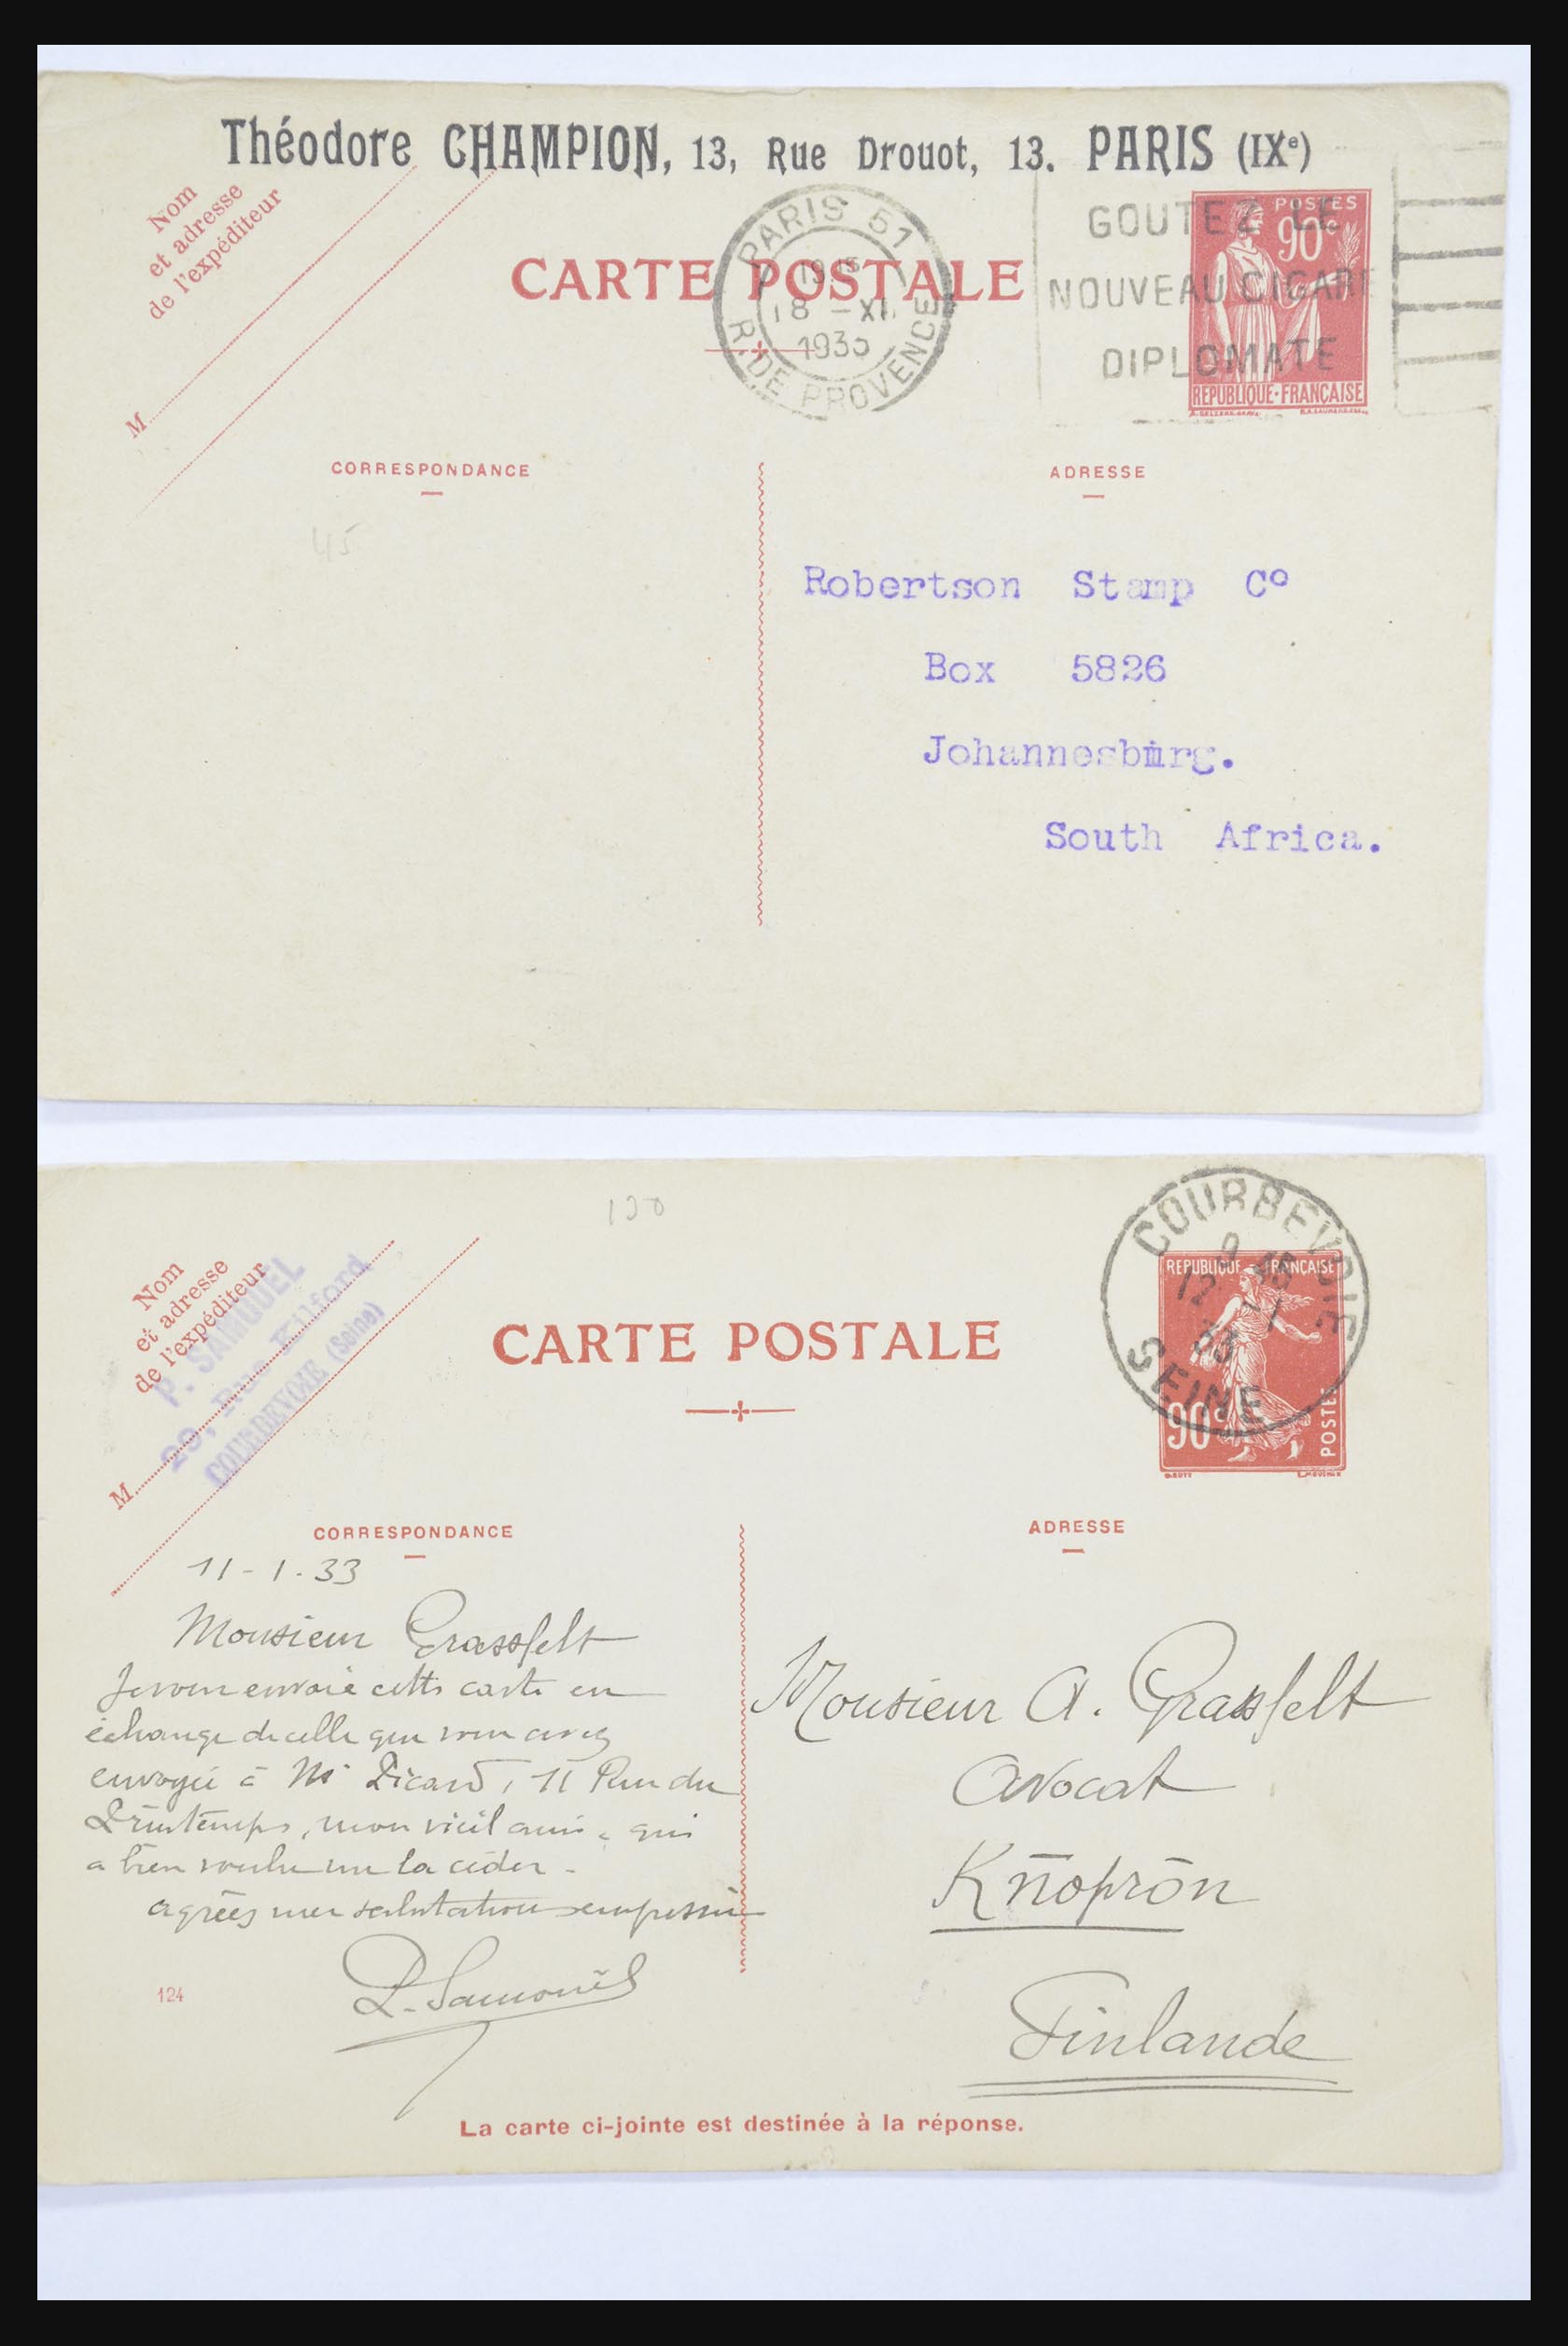 Théodore CHAMPION, 13, Rue Drouot, 13. PARIS (IXe)
Nom
et adresse
de l'expéditeur
M
CARTE POSTALE
PARIS 51
18 - XI
R. DE PROVENCE
GOUTEZ LE
NOUVEAU CIGARE
DIPLOMATE
POSTES
90c
REPUBLIQUE·FRANÇAISE
CORRESPONDANCE
ADRESSE
45
Robertson Stamp Co
Box 5826
Johannesburg.
South Africa.
120
Nom
et adresse
de l'expéditeur
M
P. SAMOUEL
29, Rue Kilford
COURBEVOIE (Seine)
CARTE POSTALE
COURBEVOIE
33
SEINE
REPUBLIQUE FRANÇAISE
90c
POSTES
CORRESPONDANCE
ADRESSE
11-1.33
Monsieur Grassfelt
Je vous envoie cette carte en
échange de celle que vous avez
envoyée à Mr Picard, 11 Rue du
Printemps, mon vieil ami, qui
a bien voulu me la céder.
agréez mes salutations empressées
P. Samouël
124
Monsieur A. Grassfelt
Avocat
Knoprōn
Finlande
La carte ci-jointe est destinée à la réponse.